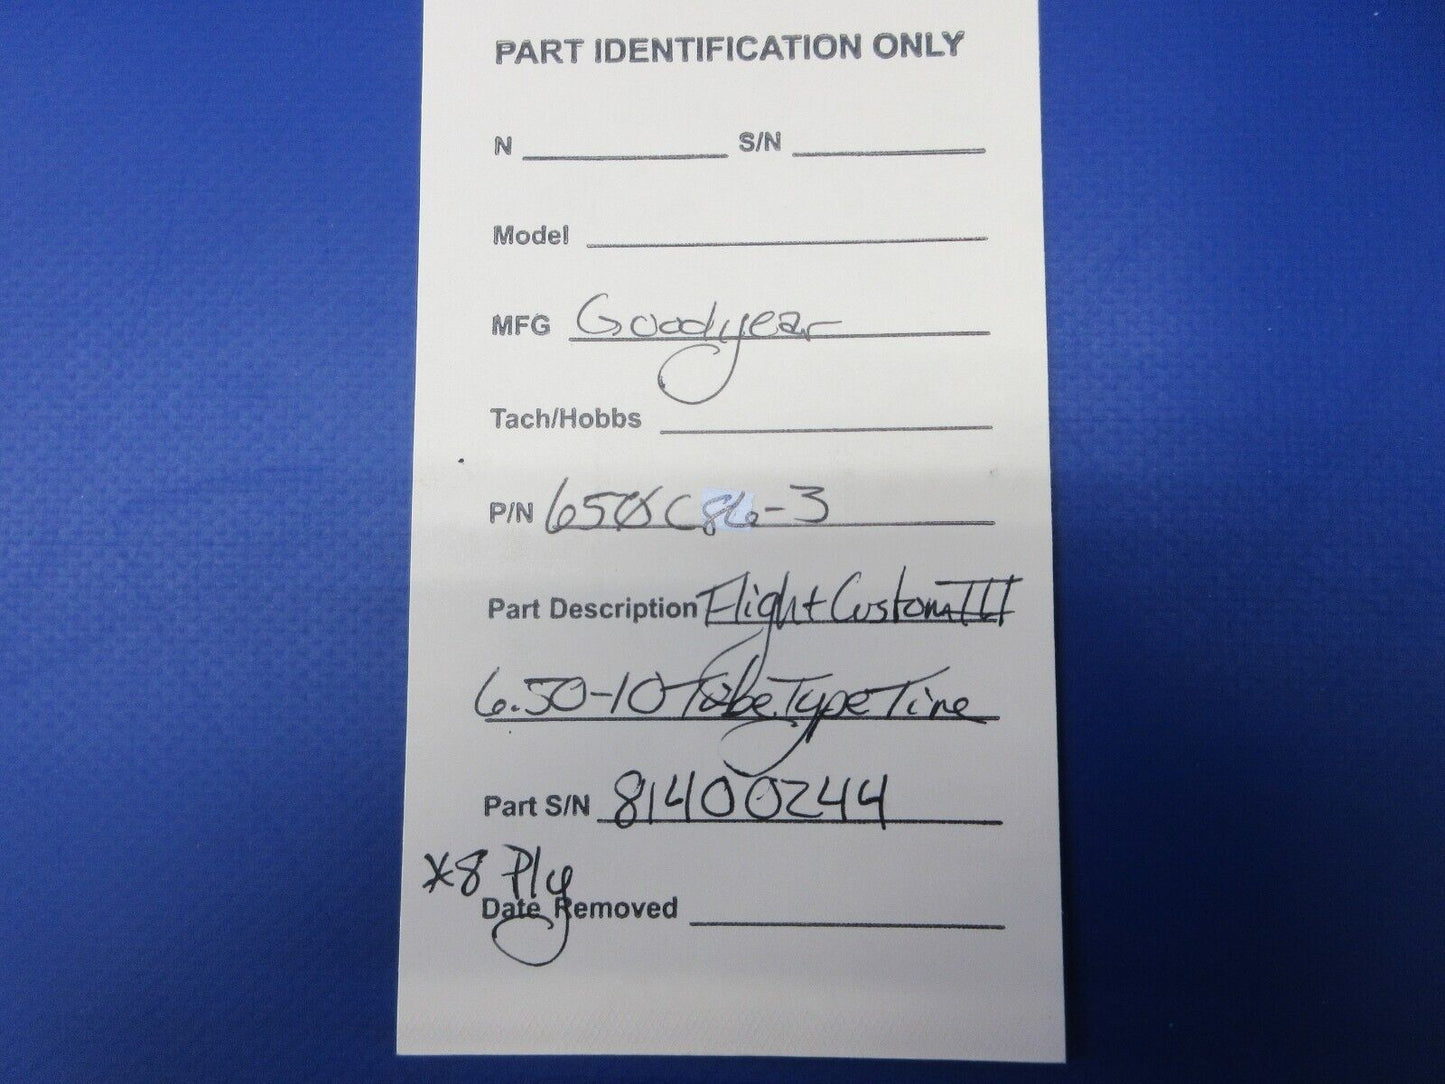 PART IDENTIFICATION ONLY
N S/N
Model
MFG Goodyear
Tach/Hobbs
P/N 650C86-3
Part Description Flight Custom III
6.50-10 Tube Type Tire
Part S/N 81400244
*8 Ply
Date Removed